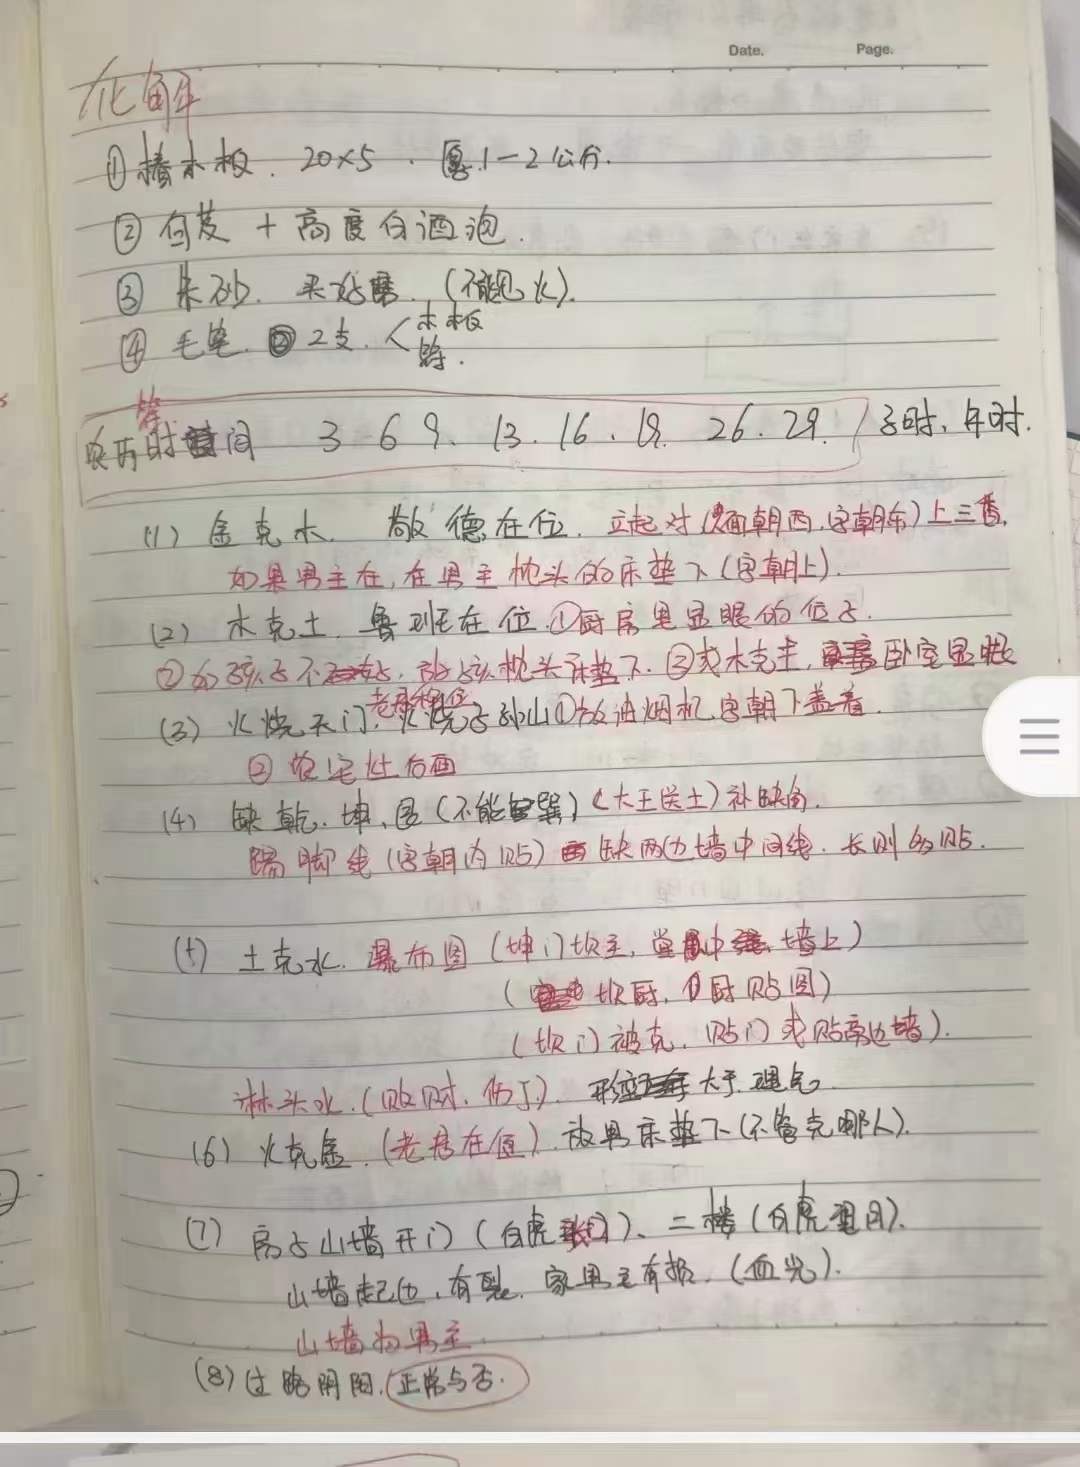 Date. Page.
化解
① 椿木板. 20×5 . 厚.1-2公分.
② 白芨 + 高度白酒泡.
③ 朱砂. 买好磨. (不能见火).
④ 毛笔. 2支. 木板
符.
时间 3 6 9. 13. 16. 19. 26. 29. 子时、午时.
(1) 金克木. 敬德在位. 立起对(面朝西,字朝东)上三香,
如果男主在,在男主枕头的床垫下(字朝上).
(2) 木克土. 鲁班在位.①厨房里显眼的位子.
②如孩子不好,孩枕头床垫下.③或木克主,卧室显眼
(3) 火烧天门. 火烧子孙山①放油烟机,字朝下盖着.
② 农宅灶后面
(4) 缺乾、坤、艮(不能巽)(大王送土)补缺角.
踢脚线(字朝内贴) 缺两边墙中间线. 长则多贴.
土克水. 瀑布图(坤门坎主,墙上)
(坎厨,厨贴图)
(坎门被克. 贴门或贴旁边墙).
淋头水.(败财.伤丁). 大于理气.
(6) 火克金.(老君在位). 放男床垫下(不管克哪人).
(7) 房子山墙开门(白虎)、二楼(白虎).
山墙起边,有裂. 家男主有损.(血光).
山墙为男主
(8) 过路阴阳.正常与否.